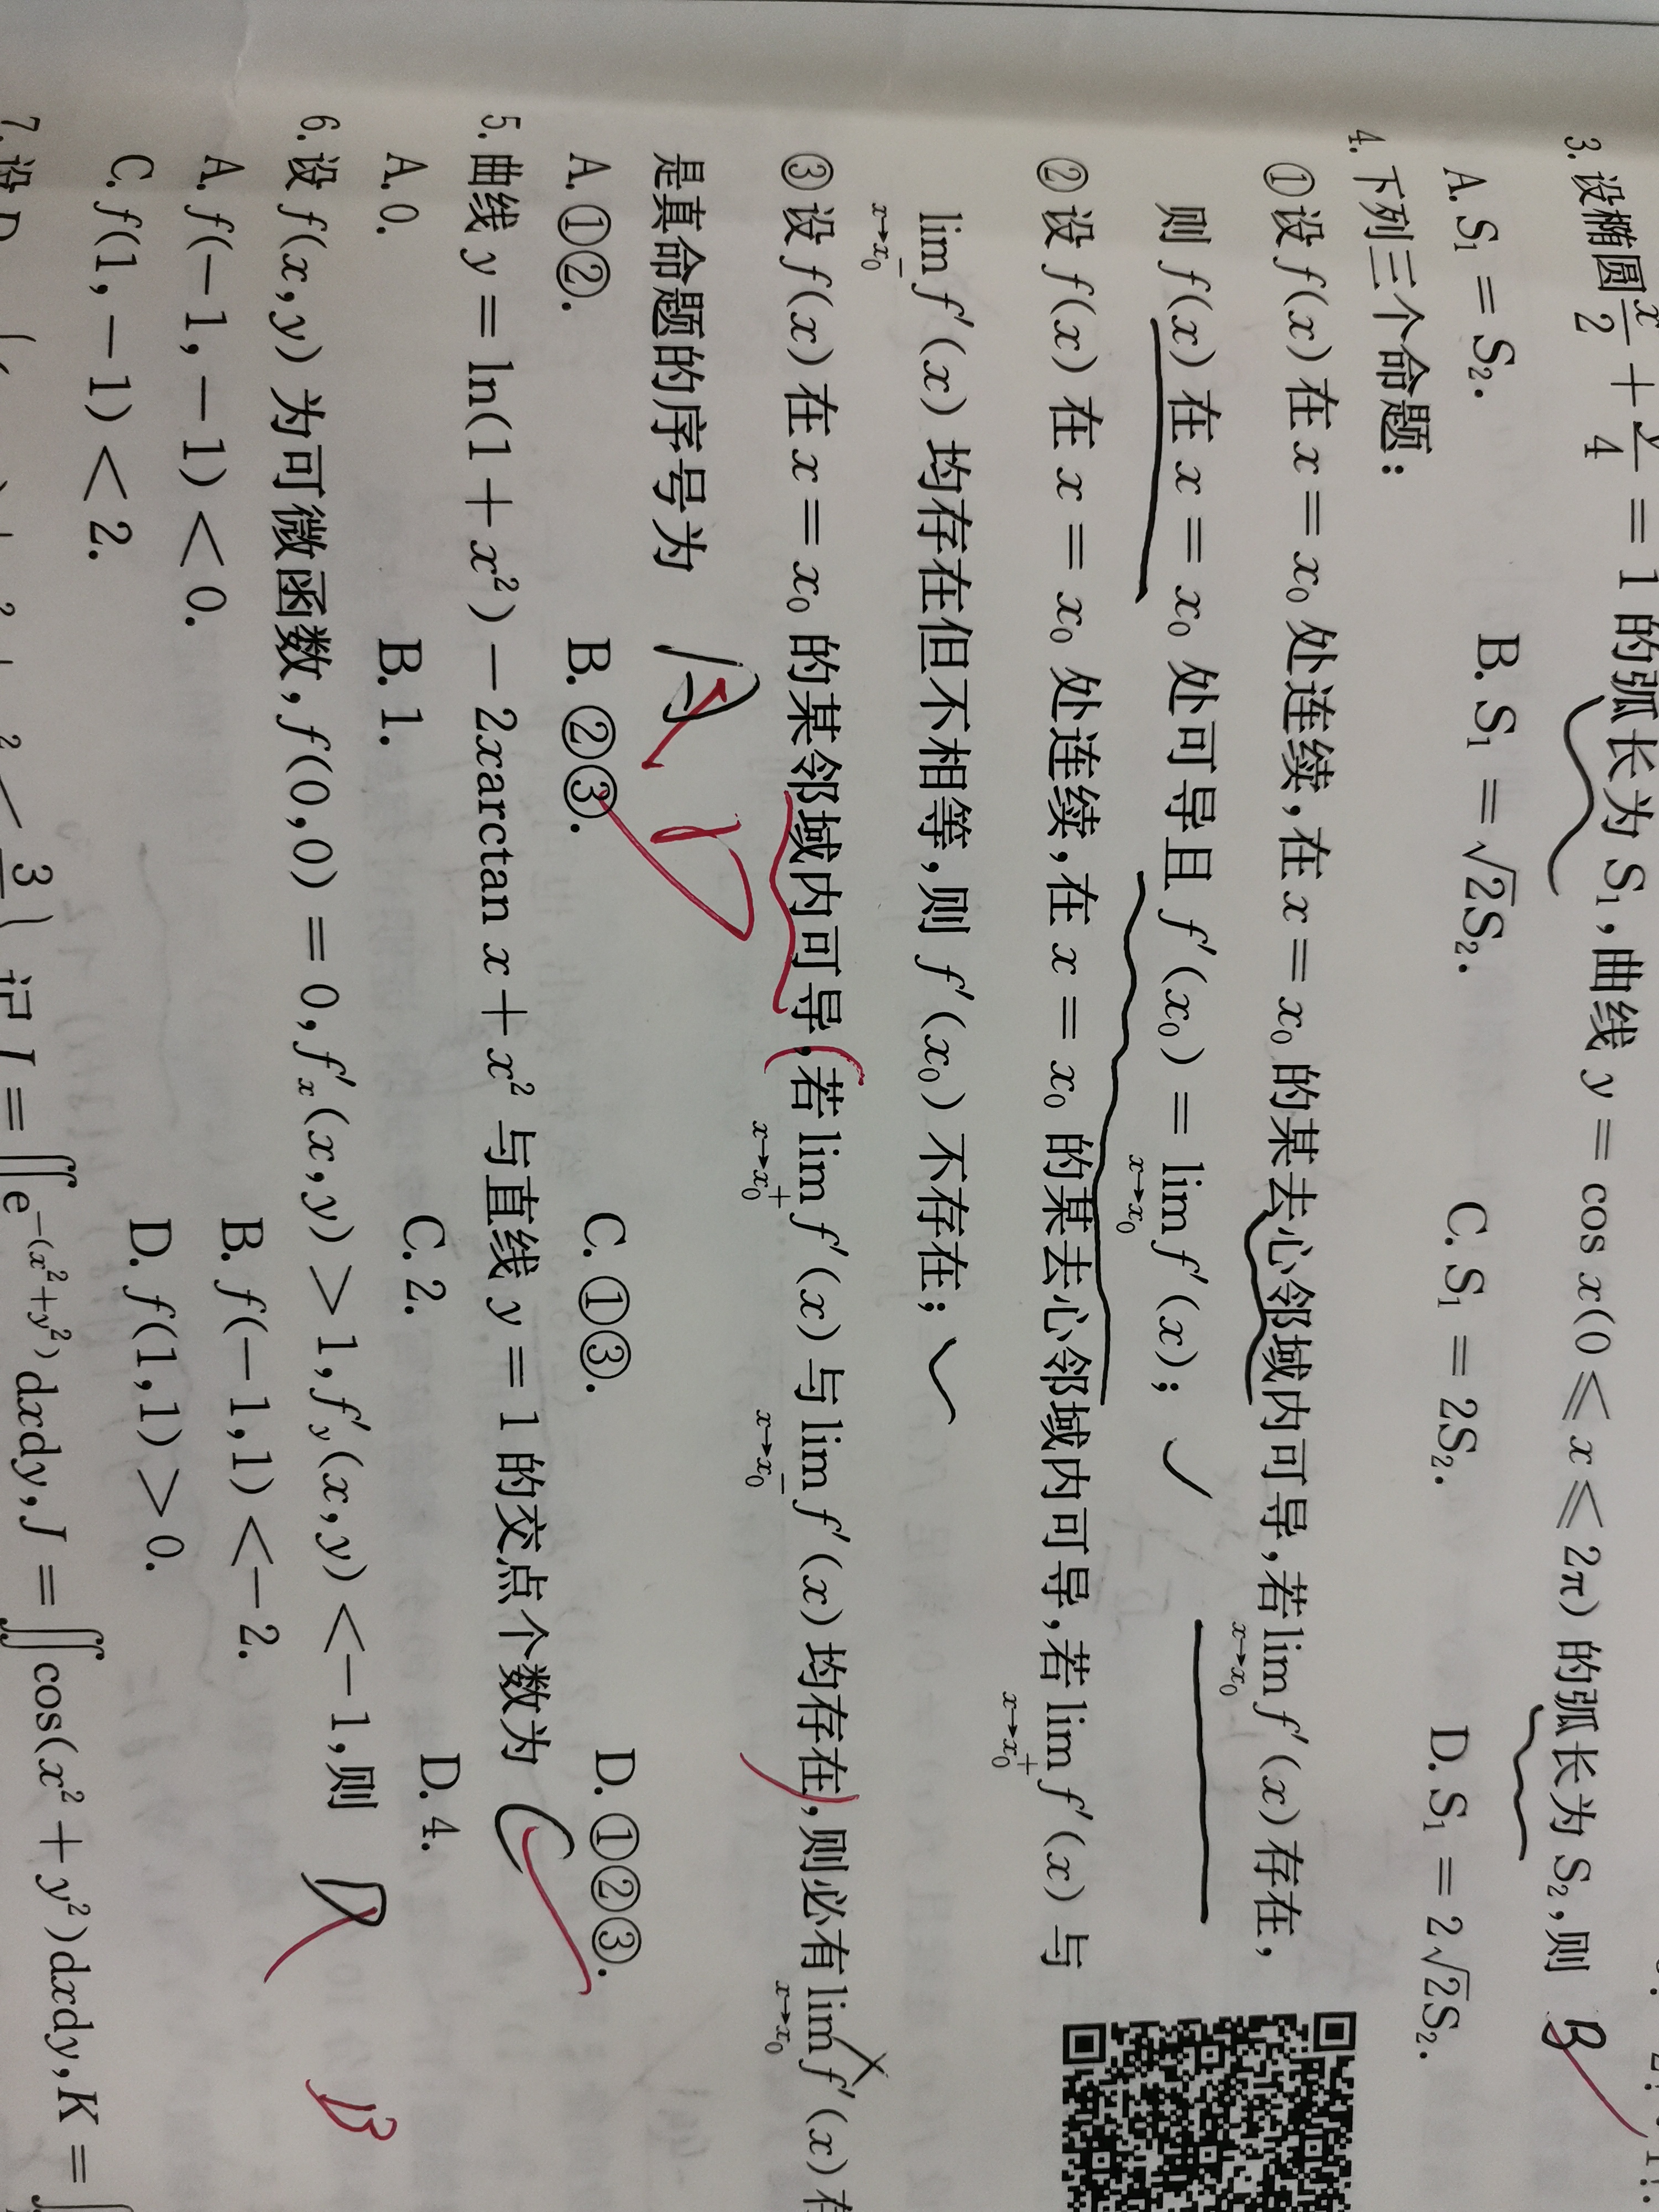 3. 设椭圆 x/2 + y/4 = 1 的弧长为 S₁,曲线 y = cos x(0 ≤ x ≤ 2π) 的弧长为 S₂,则 B
A. S₁ = S₂. B. S₁ = √2S₂. C. S₁ = 2S₂. D. S₁ = 2√2S₂.
4. 下列三个命题:
①设 f(x) 在 x = x₀ 处连续,在 x = x₀ 的某去心邻域内可导,若 lim_{x→x₀} f′(x) 存在,
则 f(x) 在 x = x₀ 处可导且 f′(x₀) = lim_{x→x₀} f′(x); ✓
②设 f(x) 在 x = x₀ 处连续,在 x = x₀ 的某去心邻域内可导,若 lim_{x→x₀⁺} f′(x) 与
lim_{x→x₀⁻} f′(x) 均存在但不相等,则 f′(x₀) 不存在; ✓
③设 f(x) 在 x = x₀ 的某邻域内可导,(若 lim_{x→x₀⁺} f′(x) 与 lim_{x→x₀⁻} f′(x) 均存在),则必有 lim_{x→x₀} f′(x) 存
是真命题的序号为 A D
A. ①②. B. ②③. C. ①③. D. ①②③.
5. 曲线 y = ln(1 + x²) − 2xarctan x + x² 与直线 y = 1 的交点个数为 C
A. 0. B. 1. C. 2. D. 4.
6. 设 f(x,y) 为可微函数,f(0,0) = 0,f′ₓ(x,y) > 1,f′_y(x,y) < −1,则 D B
A. f(−1,−1) < 0. B. f(−1,1) < −2.
C. f(1,−1) < 2. D. f(1,1) > 0.
7. 设 D 3 记 I = ∬e^{−(x²+y²)}dxdy,J = ∬cos(x² + y²)dxdy,K = ∬